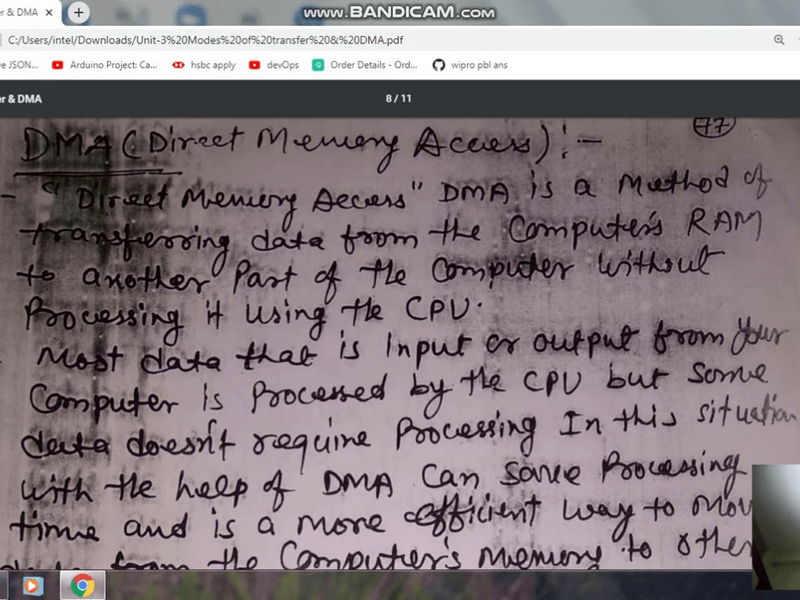 www.BANDICAM.com
r & DMA
C:/Users/intel/Downloads/Unit-3%20Modes%20of%20transfer%20&%20DMA.pdf
e JSON... Arduino Project: Ca... hsbc apply devOps Order Details - Ord... wipro pbl ans
er & DMA 8 / 11
77
DMA (Direct Memory Access) :-
- "Direct Memory Access" DMA is a Method of
transferring data from the Computer's RAM
to another Part of the Computer without
Processing it using the CPU.
Most data that is input or output from your
Computer is Processed by the CPU but some
data doesn't require Processing In this situation
with the help of DMA Can save Processing
time and is a more efficient way to mov
from the Computer's memory to other